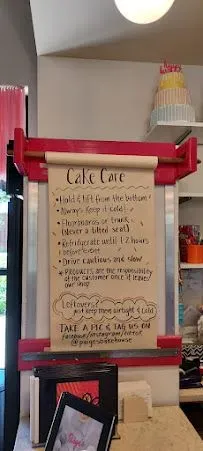 Cake Care
• Hold & lift from the bottom!
• Always keep it cold!
• Floorboards or trunk
(never a tilted seat)
• Refrigerate until 1-2 hours
before
• Drive cautious and slow
• PRODUCTS are the responsibility
of the customer once it leaves
our shop
Leftovers?
just keep them airtight & cold
TAKE A PIC & TAG US ON
facebook/instagram/tiktok
@paigesbakehouse